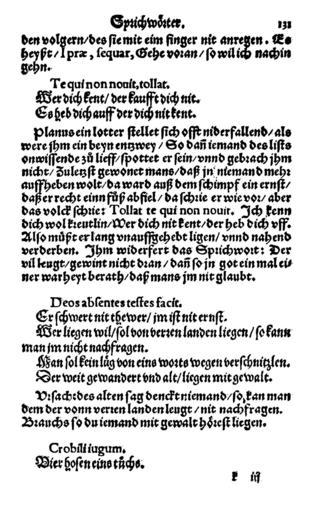 Sprichwörter. 131
den volgern/ des sie mit eim finger nit anregen. Es
heyßt/ I præ, sequar, Gehe voran/ so wil ich nachin
gehn.
Te qui non nouit, tollat.
Wer dich kent/ der kaufft dich nit.
Es heb dich auff der dich nit kent.
Planus ein lotter stellet sich offt niderfallend/ als
were jhm ein beyn entzwey/ So dañ jemand des lists
onwissende zů lieff/ spottet er sein/ vnnd gebrach jhm
nicht/ Zuletzst gewonet mans/ daß jn niemand mehr
auffheben wolt/ da ward auß dem schimpf ein ernst/
daß er recht einn fůß abfiel/ da schrie er wie vor/ aber
das volck schrie: Tollat te qui non nouit. Jch kenn
dich wol kreutlin/ Wer dich nit kent/ der heb dich vff.
Also můßt er lang vnauffgehebt ligen/ vnnd nahend
verderben. Jhm widerfert das Sprichwort: Der
vil leugt/ gewint nicht dran/ dañ so jn got ein mal ei
ner warheyt berath/ daß mans jm nit glaubt.
Deos absentes testes facit.
Er schwert nit thewer/ jm ist nit ernst.
Wer liegen wil/ sol von verren landen liegen/ so kann
man jm nicht nachfragen.
Man sol kein lůg von eins worts wegen verschnitzlen.
Der weit gewandert vnd alt/ liegen mit gewalt.
Vrsach: des alten sag denckt niemand/ so, kan man
dem der vonn verren landen leugt/ nit nachfragen.
Brauchs so du iemand mit gewalt hörest liegen.
Crobili iugum.
Vier hosen eins tůchs.
k iij